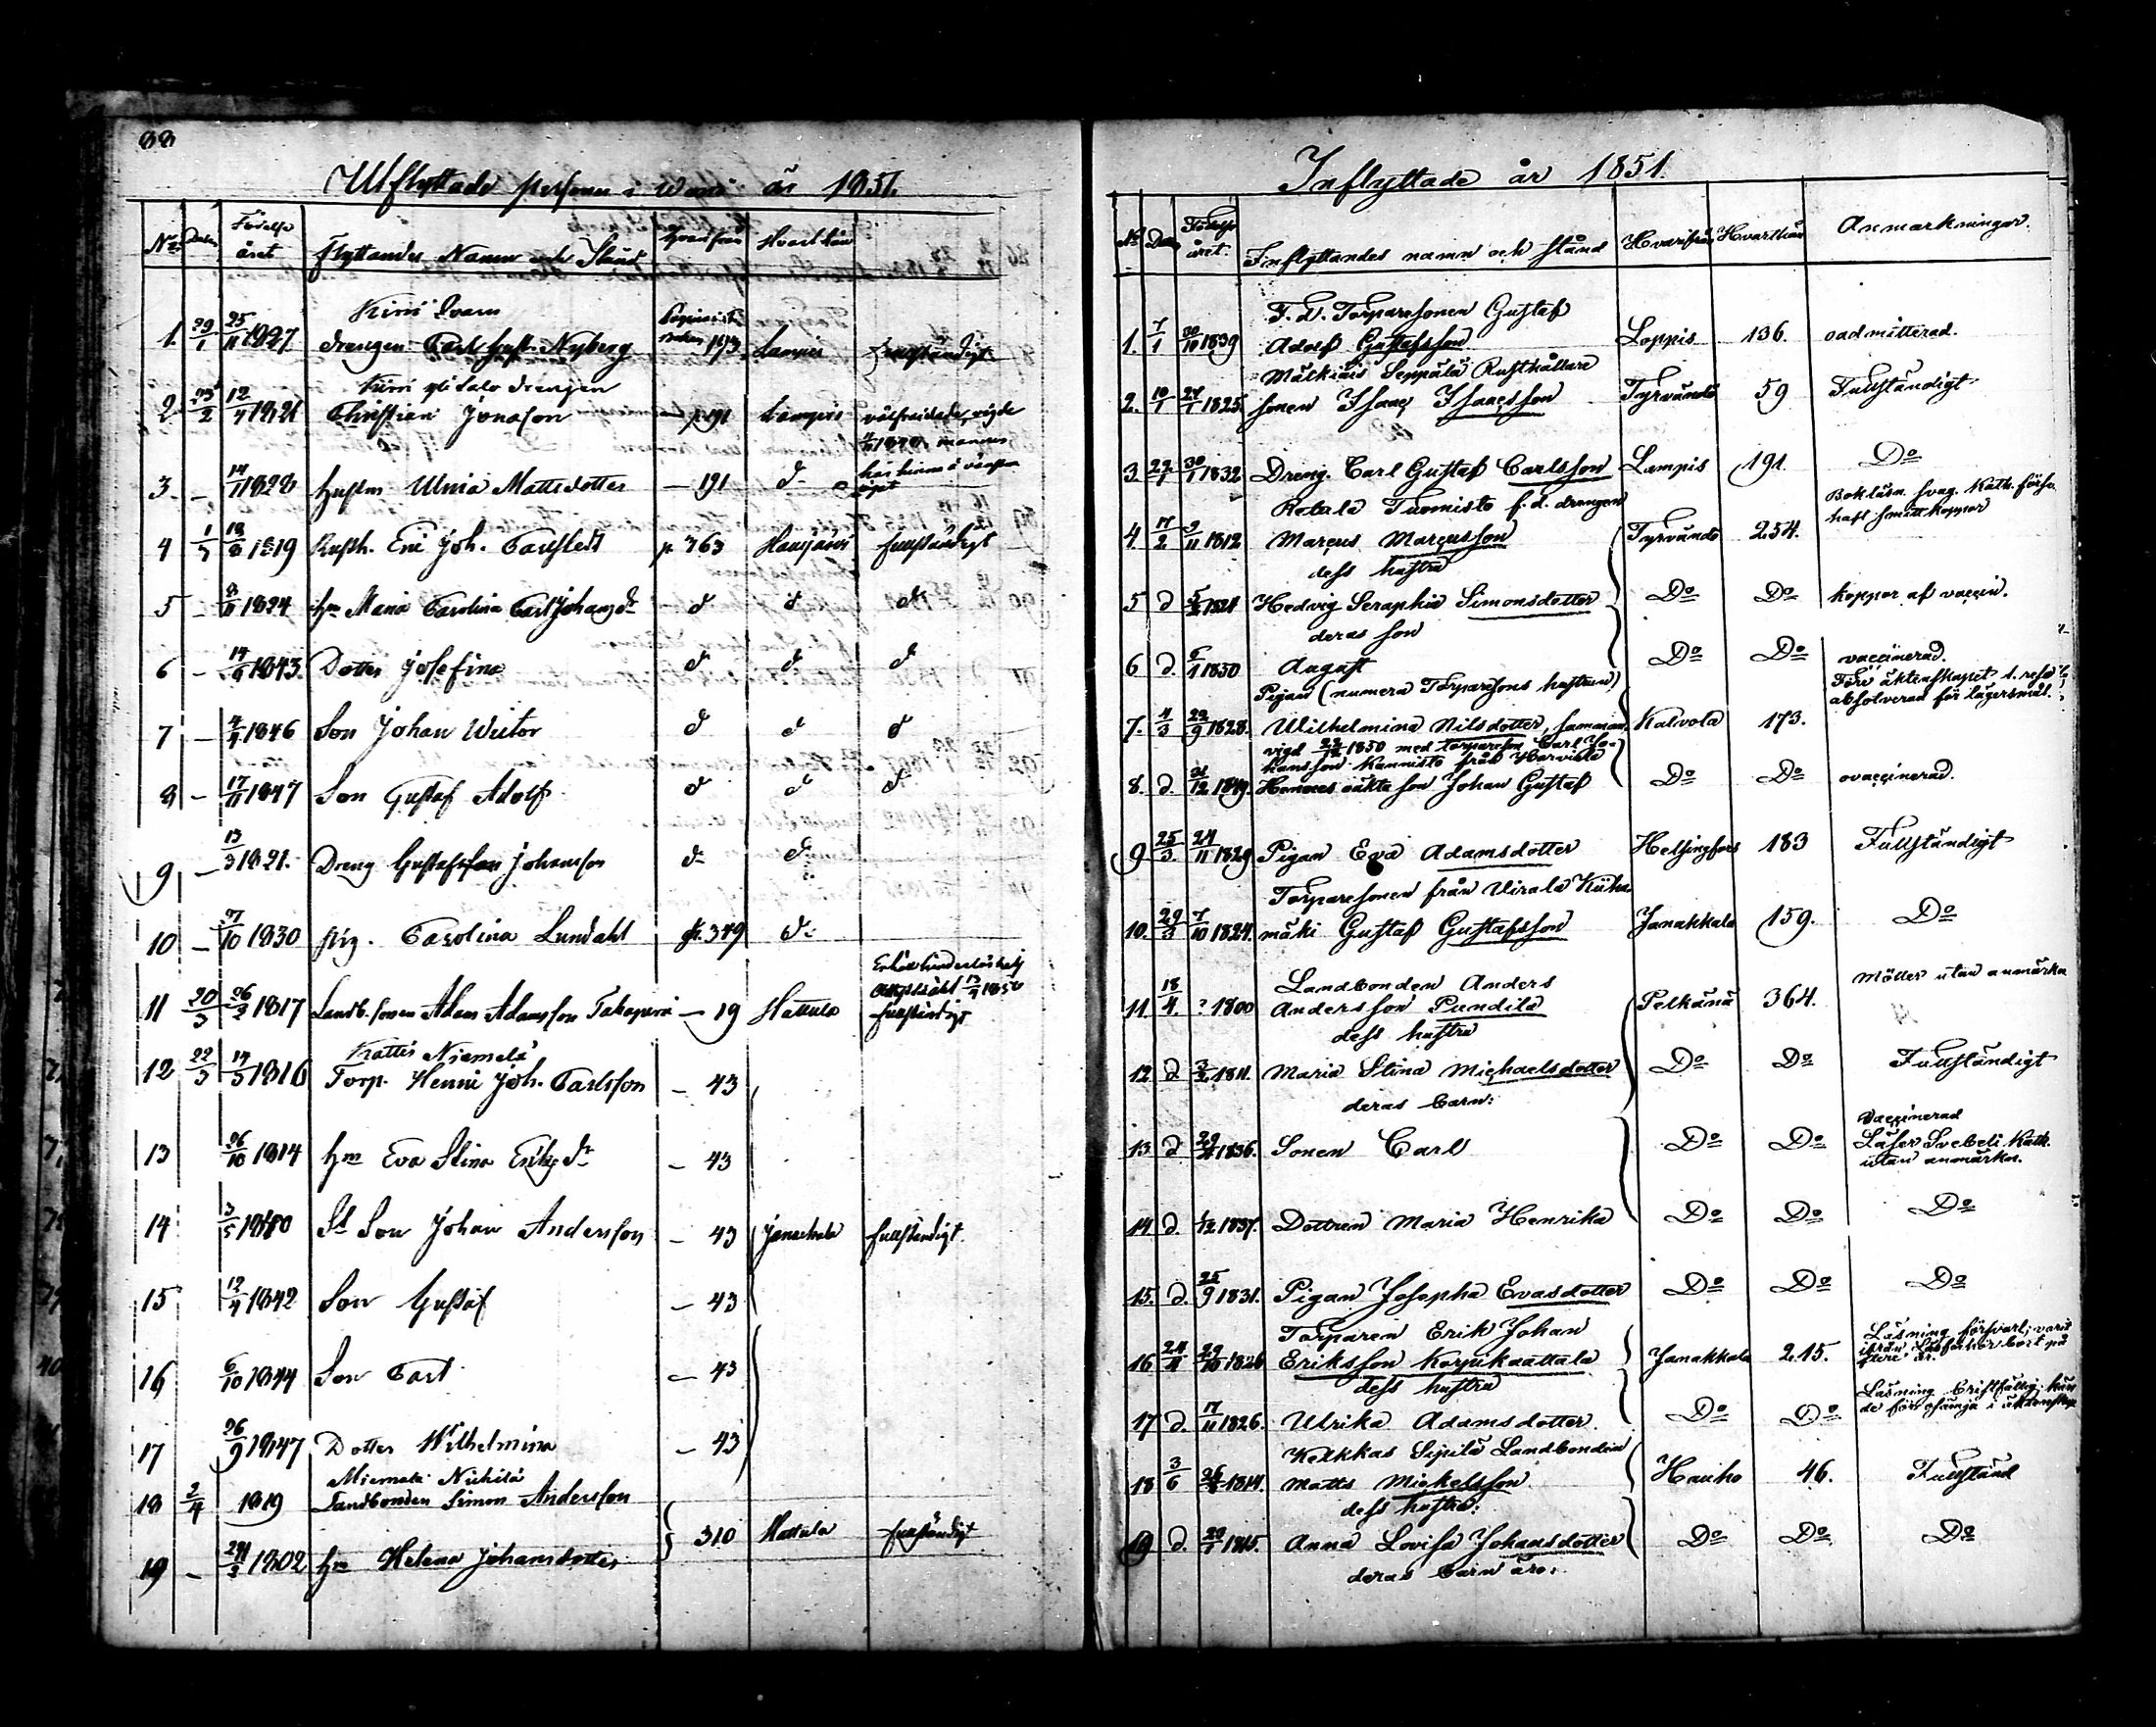 88
Utflyttade personer i Wånå år 1851.
No Datum Födelse året Flyttandes Namn och Stånd Hvarifrån Hvarthän
Kirri Svarn
1. 29/1 25/11 1827 drängen Carl Gust. Nyberg 173 Lampis fullständigt
drengen
2 25/2 12/4 1821 Christian Jonasson p 191 Lampis
3. - 14/11 1828 hustru Ulrica Mattsdotter - 191 do
4 1/3 18/8 1819 Rusth. Eric Joh. Carlstedt p 363 Hausjärvi fullständigt
5 - 1824 hru Maria Carolina Carl Johansdr d d d
6 - 14/9 1843. Dotter Josefina d d d
7 - 4/4 1846 Son Johan Victor d d d
8 - 17/11 1847 Son Gustaf Adolf d d d
9 - 13/3 1821. Dreng Johansson do do
10 - 1830 pig. Carolina Lundahl p. 349 do
11 20/3 26/2 1817 Landb. sonen Adam Adamsson - 19 Hattula fullständigt
Kattis Niemelä
12 22/3 14/3 1816 Torp. Henric Joh. Carlsson - 43
13 26/10 1814 hru Eva Stina - 43
14 3/5 Son Johan Andersson - 43 Janackala fullständigt.
15 12/4 1842 Son Gustaf - 43
16 6/10 1844 Son Carl - 43
17 26/9 1847 Dotter Wilhelmina - 43
18 2/4 1819 Landbonden Simon Andersson
19 - 1802 hru Helena Johansdotter 310 Hattula fullständigt
Inflyttade år 1851.
No Dat. Födelse året. Inflyttandes namn och stånd Hvarifrån Hvarthän Anmärkningar.
F. d. Torparesonen Gustaf
1. 7/1 30/10 1839 Adolf Gustafsson Loppis 136. oadmitterad.
Mälkiäis Seppälä Rusthållare
2. 10/1 24/1 1825. sonen Isaac Isaacsson Tyrvändö 59 Fullständigt
3 22/1 30/1 1832 Dreng. Carl Gustaf Carlsson Lampis 191. Do
Rotala Tuomisto f. d. drengen
Bokläsn. svag. Kath. försv.
haft smittkoppor
4. 17/2 9/11 1812 Marcus Marcusson Tyrvändö 254.
dess hustru
5 d 5/2 1821 Hedvig Seraphia Simonsdotter Do Do koppor af vaccin.
deras son
6 d. 6/1 1830 August Do Do vaccinerad.
Pigan (numera Torparesons hustrun)
Före äktenskapet 1. resa
absolverad för lägersmål.
7. 4/3 22/9 1828. Wilhelmina Nilsdotter, samman Kalvola 173.
vigd 26/12 1850 med torpareson Carl Jo-
hansson Kannisto från Harviala
8. d. 21/12 1849. Hennes oäkta son Johan Gustaf Do Do ovaccinerad.
9 25/3 24/11 1829 Pigan Eva Adamsdotter Helsingfors 183 Fullständigt
Torparesonen från Virala Kiiha
10. 29/3 7/10 1824. mäki Gustaf Gustafsson Janakkala 159. Do
Landbonden Anders
Möller utan anmärkn
11. 18/4. ? 1800 Andersson Pundila Pelkänä 364.
dess hustru
12 d 3/2 1811. Maria Stina Michaelsdotter Do Do Fullständigt
deras barn:
Vaccinerad
13 d 29/4 1836. Sonen Carl Do Do Läser Svebeli Kath.
utan anmärkn.
14. d. 1/12 1837. Dottren Maria Henrika Do Do Do
15. d. 25/9 1831. Pigan Josepha Evasdotter Do Do Do
Torparen Erik Johan
Läsning försvarl; varit
16 24/4 29/10 1826 Eriksson Korpikaattala Janakkala 215. ifrån Läsförhör bort på
flere år.
dess hustru
Läsning bristfällig; kän
17 d. 17/11 1826. Ulrika Adamsdotter. Do Do de för osämja i äktenskap
Kelkkas Sipilä Landbonden
18 3/6 1814. Matts Mickelsson. Hauho 46. Fullständ
dess hustru:
19 d. 1815. Anna Lovisa Johansdotter Do Do Do
deras barn äro: